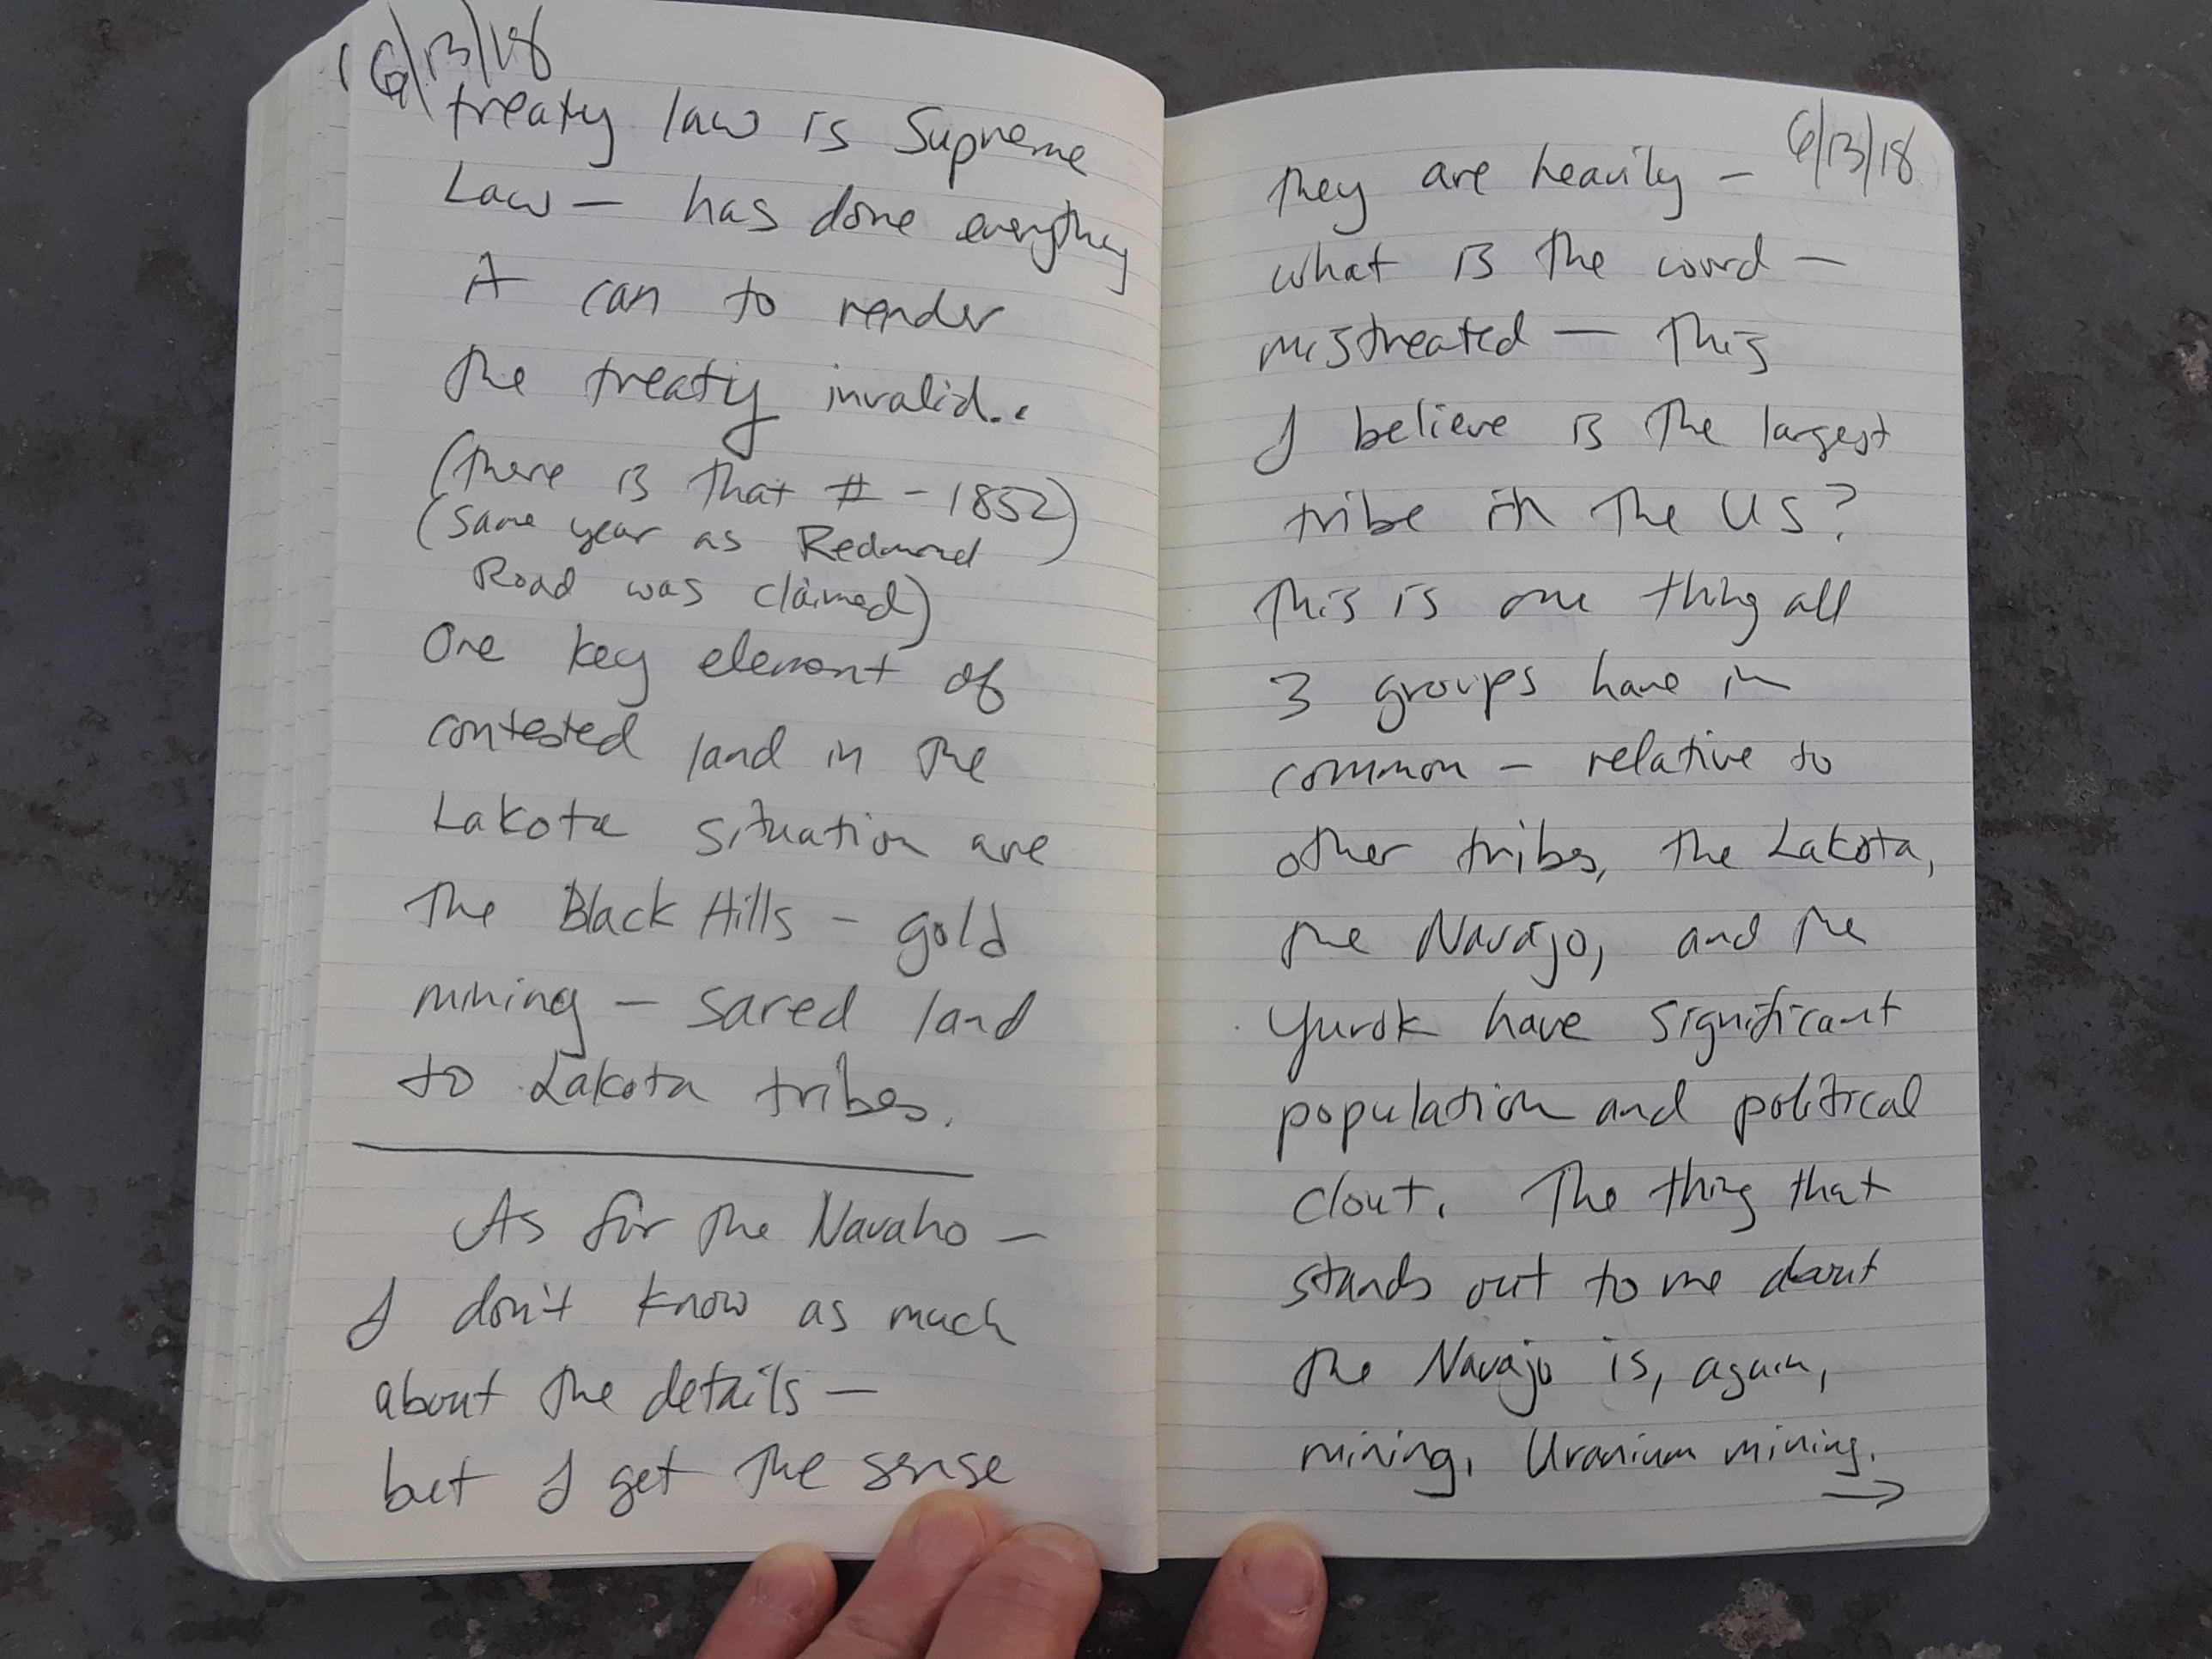 6/13/18
treaty law is Supreme
Law — has done everything
it can to render
the treaty invalid..
(there is that # - 1852)
(same year as Redmond
Road was claimed)
One key element of
contested land in the
Lakota situation are
the Black Hills - gold
mining — sared land
to Lakota tribes.
As for the Navaho —
I don't know as much
about the details —
but I get the sense
6/13/18
they are heavily —
what is the word —
mistreated — This
I believe is the largest
tribe in the US?
This is one thing all
3 groups have in
common — relative to
other tribes, the Lakota,
the Navajo, and the
Yurok have significant
population and political
clout. The thing that
stands out to me about
the Navajo is, again,
mining. Uranium mining.
→